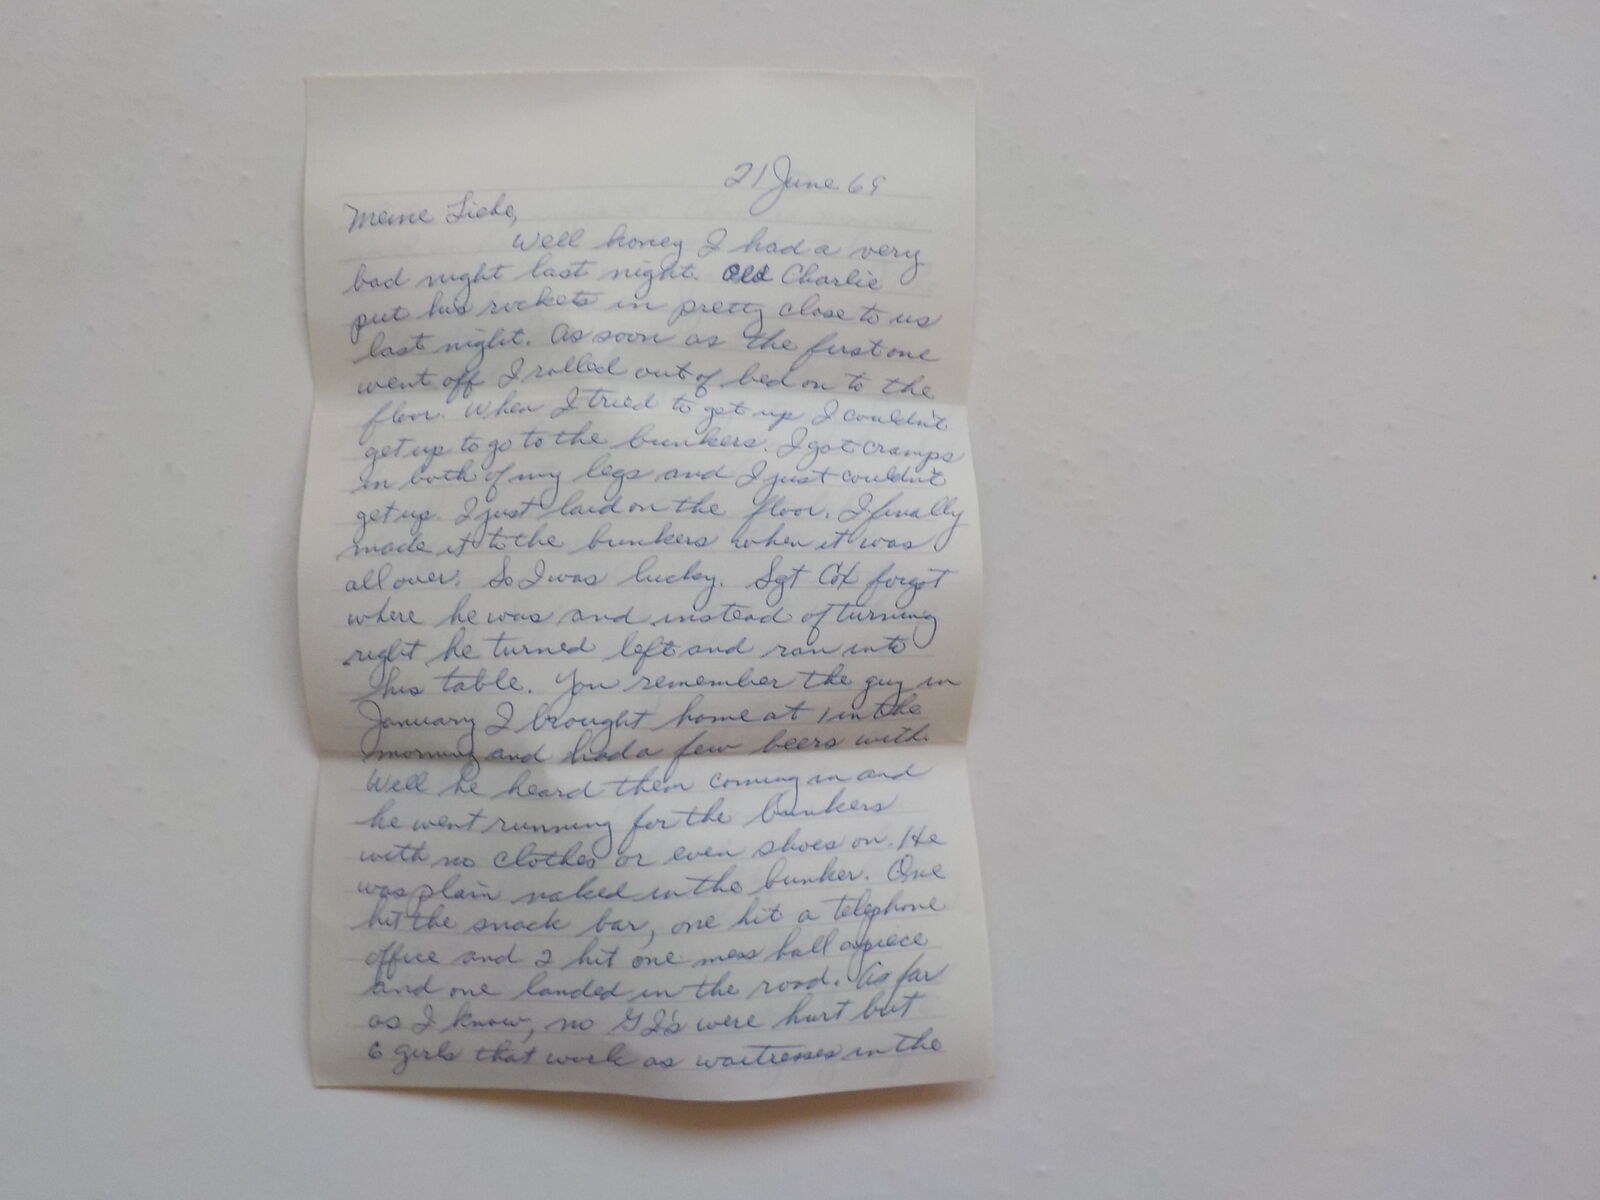 21 June 69
Meine Liebe,
Well honey I had a very
bad night last night. Old Charlie
put his rockets in pretty close to us
last night. As soon as the first one
went off I rolled out of bed on to the
floor. When I tried to get up I couldn't
get up to go to the bunkers. I got cramps
in both of my legs and I just couldn't
get up. I just laid on the floor. I finally
made it to the bunkers when it was
all over. So I was lucky. Sgt Cox forgot
where he was and instead of turning
right he turned left and ran into
his table. You remember the guy in
January I brought home at 1 in the
morning and had a few beers with.
Well he heard them coming in and
he went running for the bunkers
with no clothes or even shoes on. He
was plain naked in the bunker. One
hit the snack bar, one hit a telephone
office and 2 hit one mess hall apiece
and one landed in the road. As far
as I know, no GI's were hurt but
6 girls that work as waitresses in the